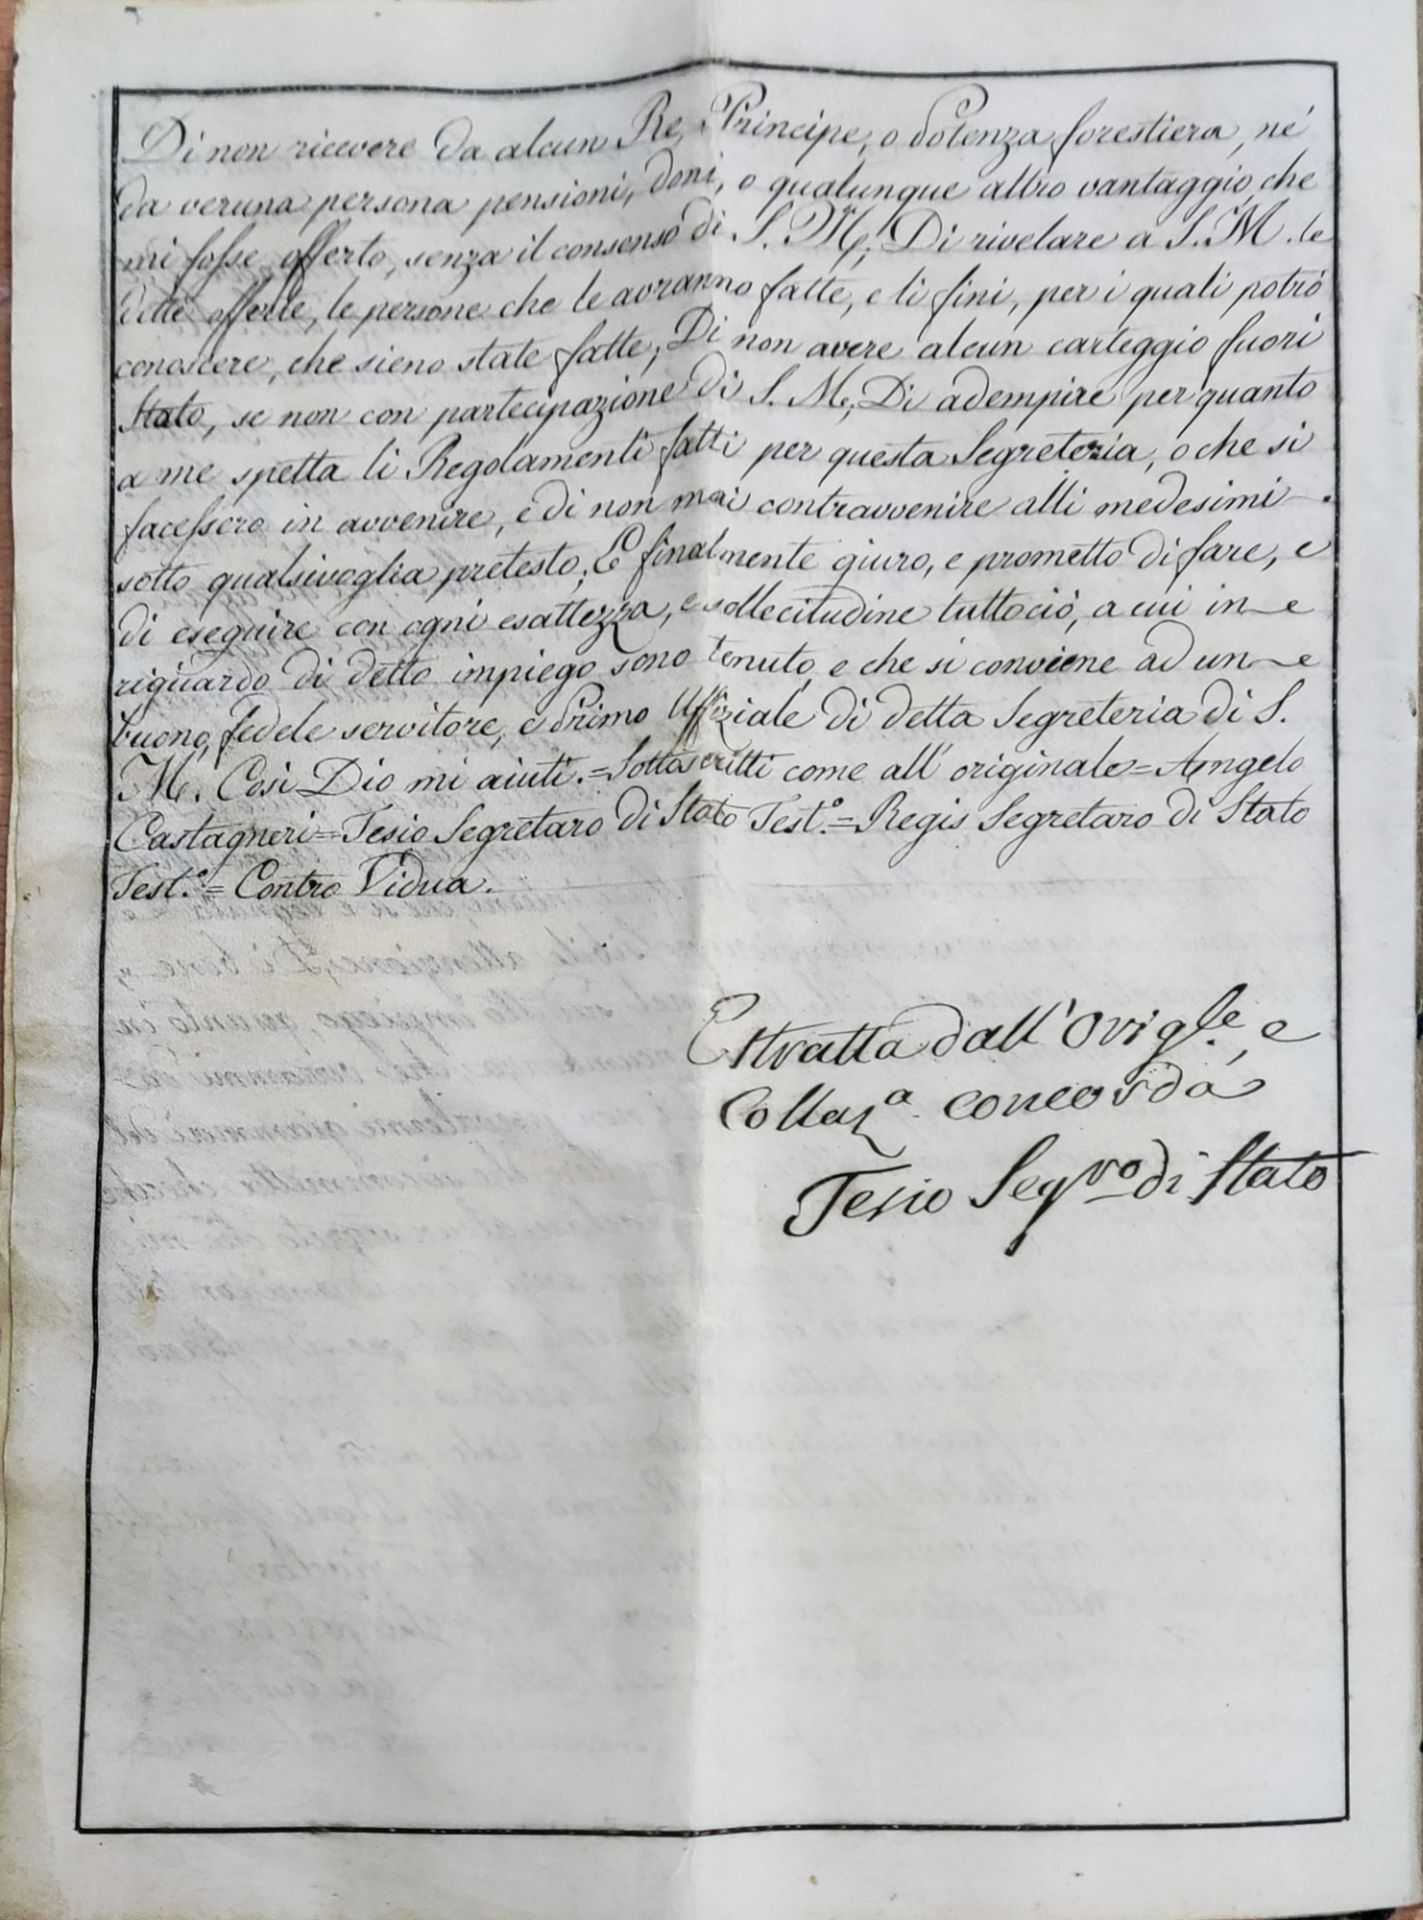 Di non ricevere da alcun Re, Principe, o Potenza forestiera, né
da veruna persona pensioni, doni, o qualunque altro vantaggio, che
mi fosse offerto, senza il consenso di S. M.; Di rivelare a S. M. le
dette offerte, le persone che le avranno fatte, e li fini, per i quali potrò
conoscere, che sieno state fatte; Di non avere alcun carteggio fuori
Stato, se non con partecipazione di S. M.; Di adempire per quanto
a me spetta li Regolamenti fatti per questa Segreteria, o che si
facessero in avvenire, e di non mai contravvenire alli medesimi
sotto qualsivoglia pretesto; E finalmente giuro, e prometto di fare, e
di eseguire con ogni esattezza, e sollecitudine tuttociò, a cui in
riguardo di detto impiego sono tenuto, e che si conviene ad un
buono, fedele servitore, e Primo Uffiziale di detta Segreteria di S.
M. Così Dio mi aiuti.= Sottoscritti come all' originale= Angelo
Castagneri= Tesio Segretaro di Stato Test.º= Regis Segretaro di Stato
Test.º= Contro Vidua.
Estratta dall' Orig.le, e
Collaz.a concorda
Tesio Seg.ro di Stato